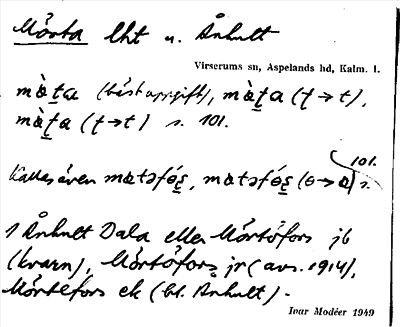 Mörta lht u. Ånhult
Virserums sn, Aspelands hd, Kalm. l.
mɑ̀ṭa (bäst uppgift), mɑ̀ṭa (ṭ→t),
mɑ̀ṭa (ṭ→t) s. 101.
101.
Kallas även mɑtəfǿs̱, mɑtəfǿs̱ (ɵ→ɑ) s.
1 Ånhult Dala eller Mörtöfors jb
(kvarn), Mörtöfors jr (avs. 1914),
Mörtefors ek (bl. Ånhult).
Ivar Modéer 1949